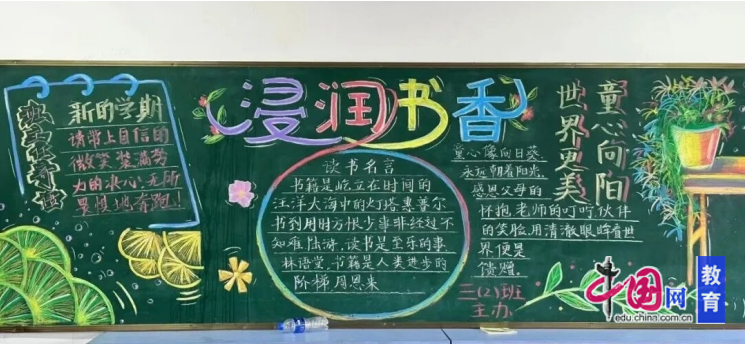 新的学期
请带上自信的
微笑装满努
力的决心无所
畏惧地奔跑!
浸润书香
读书名言
书籍是屹立在时间的
汪洋大海中的灯塔惠普尔
书到用时方恨少事非经过不
知难陆游.读书是至乐的事.
林语堂.书籍是人类进步的
阶梯周恩来
童心向阳
世界更美
童心像向日葵
永远朝着阳光,
感恩父母的
怀抱,老师的叮咛伙伴
的笑脸用清澈眼眸看世
界便是
馈赠.
三(2)班
主办
中国网
edu.china.com.cn
教育